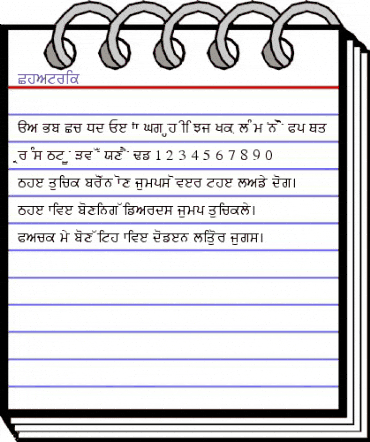 ਛਹਅਟਰਕਿ
ੳਅ ਭਬ ਛਚ ਧਦ ਓੲ ਾਂ ਘਗ ੍ਹ ੀਿ ਝਜ ਖਕ ਲ਼ ੰਮ ਂਨ ੌੋ ਫਪ ਥਤ
੍ਰਰ ੰਸ ਠਟ ੂੁ ੜਵ ੱਾ ਯਣ ੈੇ ਢਡ 1 2 3 4 5 6 7 8 9 0
ਠਹੲ ਤੁਚਿਕ ਬਰੋੱਨ ਡੋਣ ਜੁਮਪਸ ਡੋਵੲਰ ਟਹੲ ਲਅਡੇ ਦੋਗ।
ਠਹੲ ਾਵਿੲ ਬੋਣਨਿਗ ੱਡਿਅਰਦਸ ਜੁਮਪ ਤੁਚਿਕਲੇ।
ਫਅਚਕ ਮੇ ਬੋਣ ੱਟਿਹ ਾਵਿੲ ਦੋਡੲਨ ਲਤਿੁੋਰ ਜੁਗਸ।